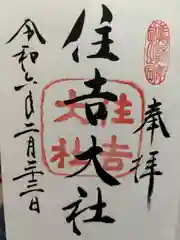 奉拝
住吉大社
住吉大社
令和六年二月二十三日